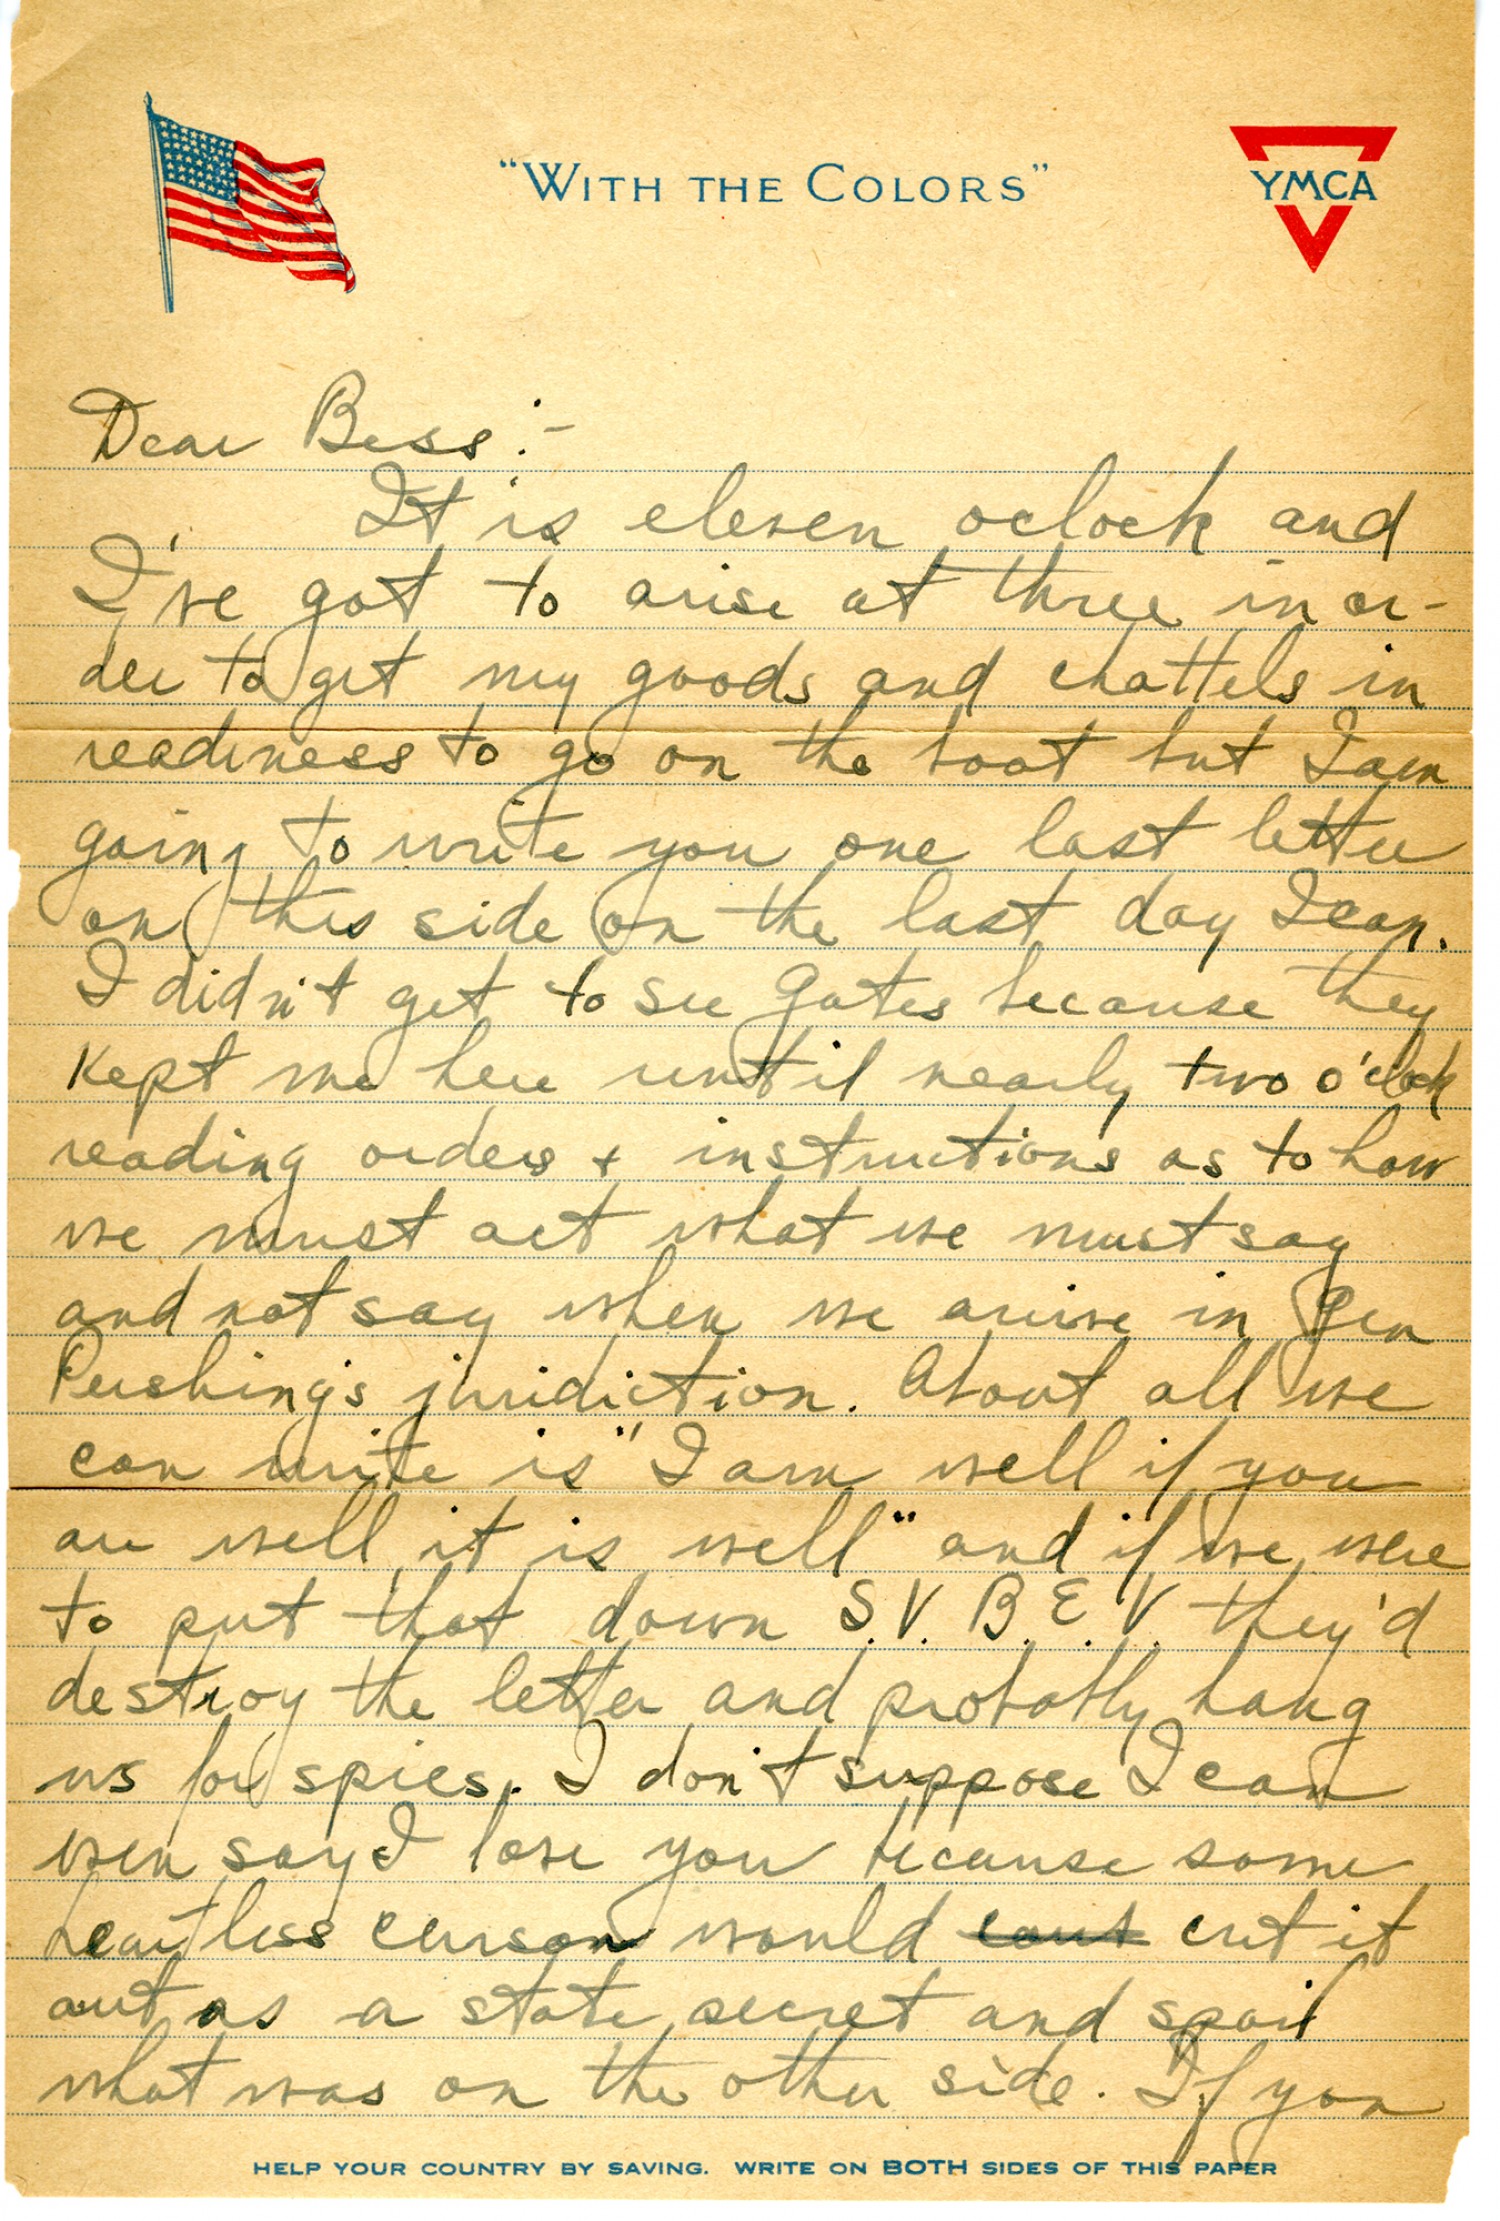 "WITH THE COLORS"
YMCA
Dear Bess:-
It is eleven oclock and
I've got to arise at three in or-
der to get my goods and chattels in
readiness to go on the boat but I am
going to write you one last letter
on this side on the last day I can.
I didn't get to see Gates because they
kept me here until nearly two o'clock
reading orders + instructions as to how
we must act what we must say
and not say when we arrive in Gen
Pershing's juridiction. About all we
can write is "I am well if you
are well it is well" and if we were
to put that down S.V. B.E.V. they'd
destroy the letter and probably hang
us for spies. I don't suppose I can
even say I love you because some
heartless censor would cout cut it
out as a state secret and spoil
what was on the other side. If you
HELP YOUR COUNTRY BY SAVING. WRITE ON BOTH SIDES OF THIS PAPER